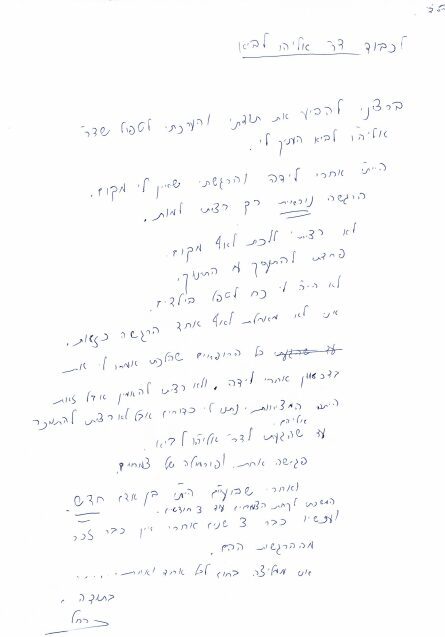 בס"ד
לכבוד דר אליהו לביא
ברצוני להביע את תודתי והערכתי לטפול שדר'
אליהו לביא העניק לי.
הייתי אחרי לידה והרגשתי שאין לי מקום.
הרגשה נוראית רק רציתי למות.
לא רציתי ללכת לאף מקום.
פחדתי להתעסק עם התינוק.
לא היה לי כח לטפל בילדים.
אני לא מאחלת לאף אחד הרגשה כזאת.
כל הרופאים שהלכתי אמרו לי את
בדכאון אחרי לידה. ולא רציתי להאמין אבל זאת
היתה המציאות. נתנו לי כדורים אבל לא רציתי להתמכר
אליהם.
עד שהגעתי לדר' אליהו לביא.
פגישה אחת, ופורמולה של צמחים,
ואחרי שבועיים הייתי בן אדם חדש.
המשכתי לקחת הצמחים עד 3 חודשים.
ועכשיו כבר 3 שנים אחרי ואין כבר זכר
מההרגשות ההם.
אני ממליצה בחום לכל אחד ואחת......
בתודה.
רחל